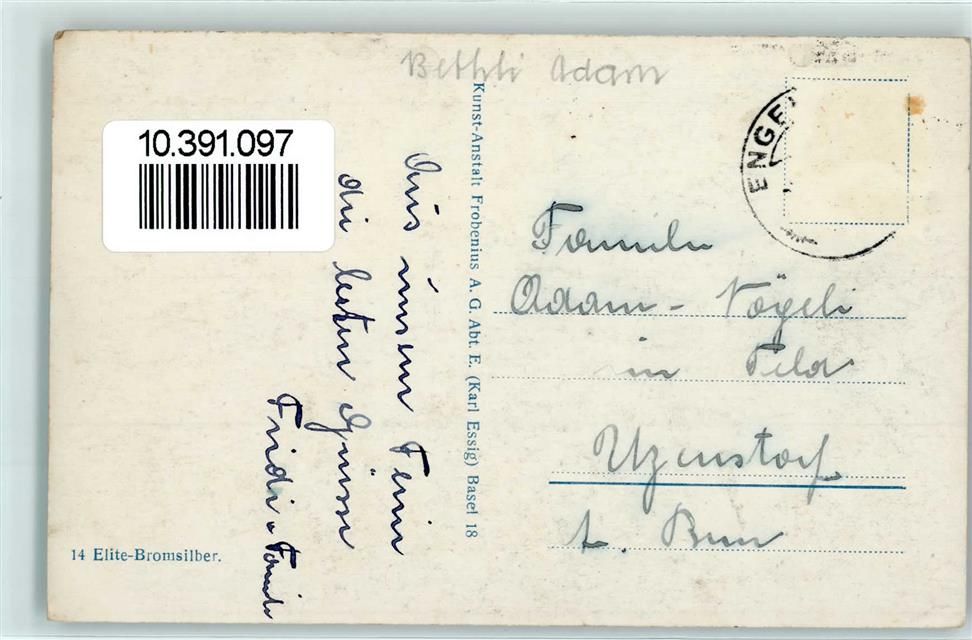 Bethli Adam
10.391.097
Aus unsern Ferien
die besten Grüsse
Fridi u Familie
Kunst-Anstalt Frobenius A. G. Abt. E. (Karl Essig) Basel 18
ENGE
Familie
Adam - Vögeli
in Feld
Utzenstorf
Kt. Bern
14 Elite-Bromsilber.